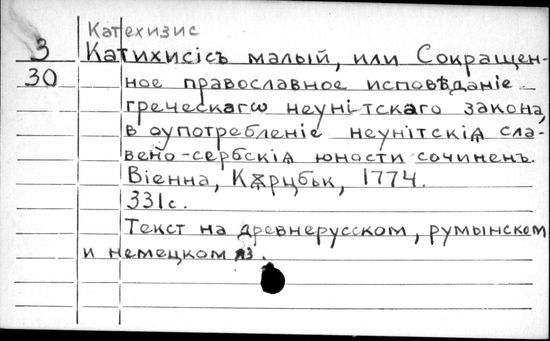 Катехизис
3 Катихисісъ малый, или Сокращен-
30 ное православное исповѣданіе
греческагω неуні-тскаго закона,
в оупотребленіе неунітскія сла-
вено-сербскія юности сочиненъ.
Віенна, Кꙋрцбък, 1774.
331с.
Текст на древнерусском, румынском
и немецком яз.